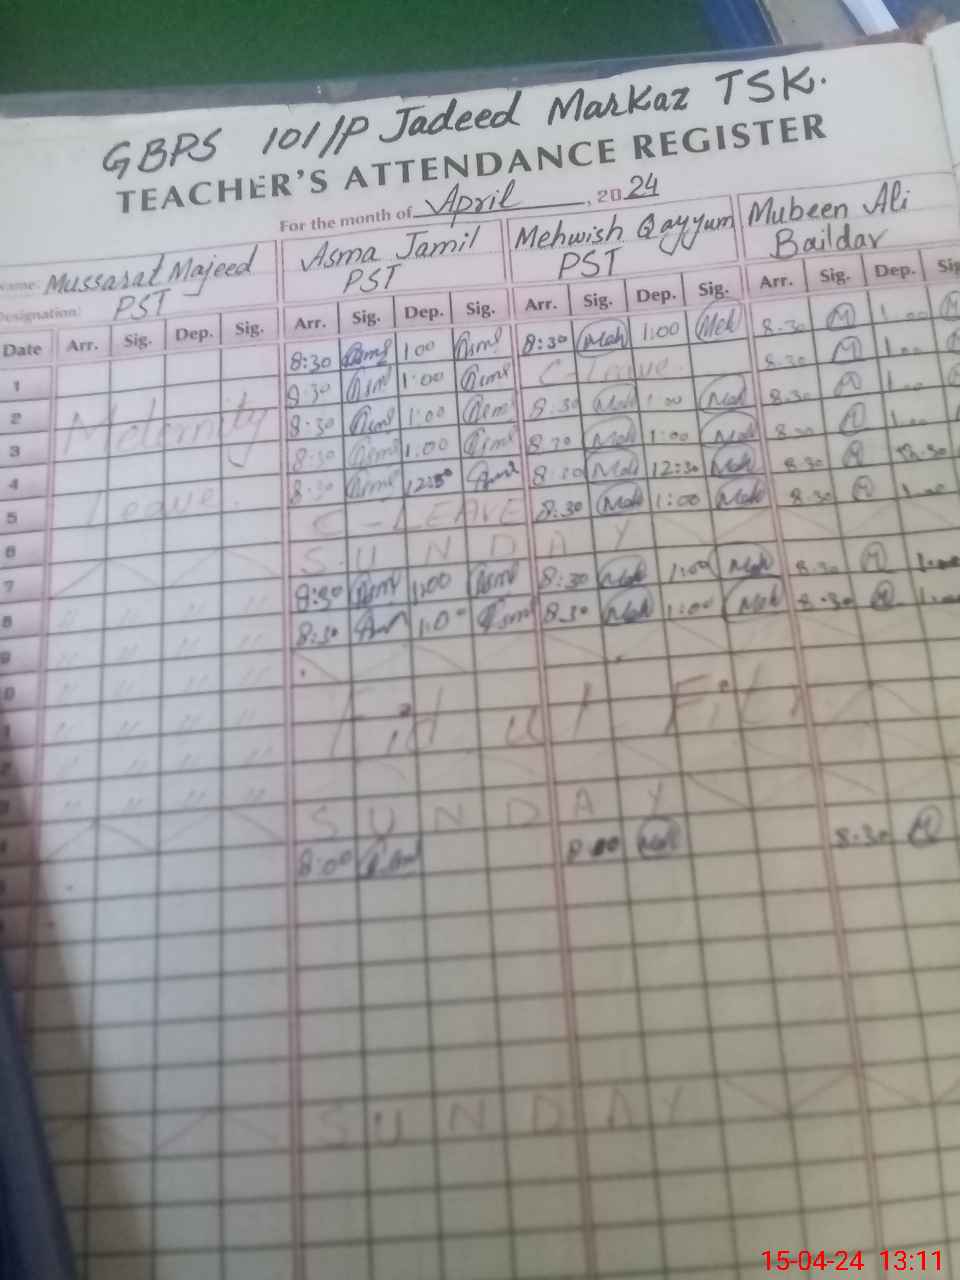 GBPS 101/P Jadeed Markaz TSK.
TEACHER'S ATTENDANCE REGISTER
For the month of April, 2024
Name: Mussarat Majeed Asma Jamil Mehwish Qayyum Mubeen Ali
Designation: PST PST PST Baildar
Date Arr. Sig. Dep. Sig. Arr. Sig. Dep. Sig. Arr. Sig. Dep. Sig. Arr. Sig. Dep. Sig
1 8:30 Asml 1:00 Asml 8:30 Meh 1:00 Meh 8:30 M 1:00 M
2 8:30 Asml 1:00 Asml C-Leave 8:30 M 1:00
3 Maternity 8:30 Asml 1:00 Asml 8:30 Meh 1:00 Meh 8:30 M 1:00
4 8:30 Asml 1:00 Asml 8:30 Meh 1:00 Meh 8:30 M 1:00
5 Leave 8:30 Asml Asml 8:30 Meh 12:30 Meh 8:30 M 12:30
6 C-LEAVE 8:30 Meh 1:00 Meh 8:30 M 1:00
7 SUNDAY
8 " " " " 8:30 Asml 1:00 Asml 8:30 Meh 1:00 Meh 8:30 M 1:00
9 " " " " 8:30 1:00 Asml 8:30 Meh 1:00 Meh 8:30 M 1:00
0 " " " "
1 " " " " Eid ul Fitr
2 " " " "
3 " " " "
SUNDAY
8:00 Meh 8:30 M
SUNDAY
15-04-24 13:11